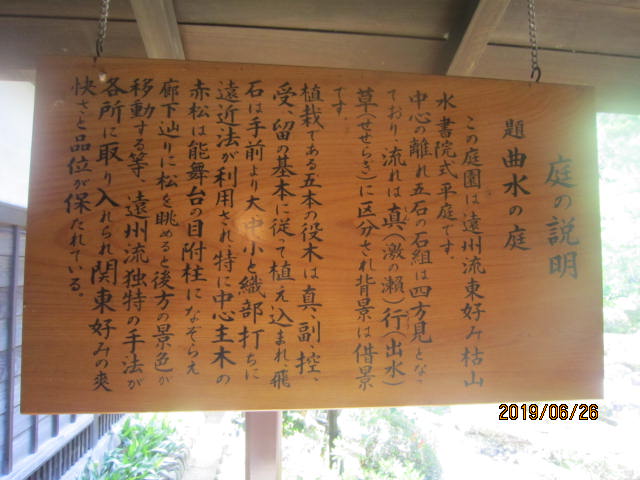 庭の説明
題 曲水の庭
この庭園は遠州流東好み枯山
水書院式平庭です。
中心の離れ五石の石組は四方見となっ
ており、流れは真(激の瀬)行(出水)
草(せせらぎ)に区分され背景は借景
です。
植栽である五本の役木は真、副、控、
受、留の基本に従って植え込まれ、飛
石は手前より大中小と織部打ちに
遠近法が利用され特に中心主木の
赤松は能舞台の目附柱になぞらえ
廊下辿りに松を眺めると後方の景色が
移動する等、遠州流独特の手法が
各所に取り入れられ関東好みの爽
快さと品位が保たれている。
2019/06/26